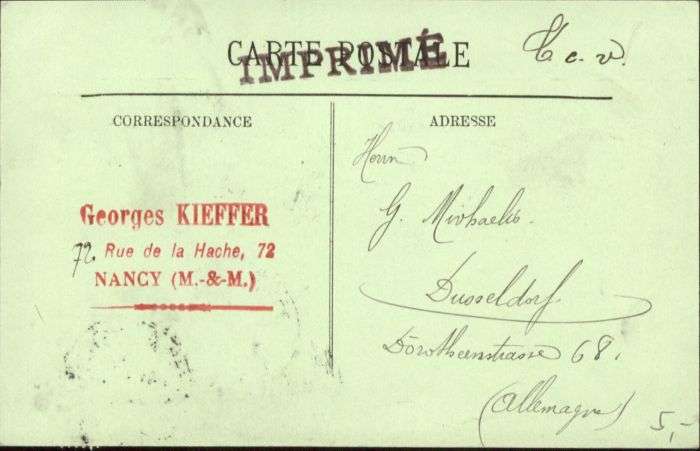 CARTE POSTALE
IMPRIMÉ
T.c.v.
CORRESPONDANCE
ADRESSE
Georges KIEFFER
72, Rue de la Hache, 72
NANCY (M.-&-M.)
Herrn
G. Michaelis.
Dusseldorf
Dorotheenstrasse 68.
(Allemagne)
5,-